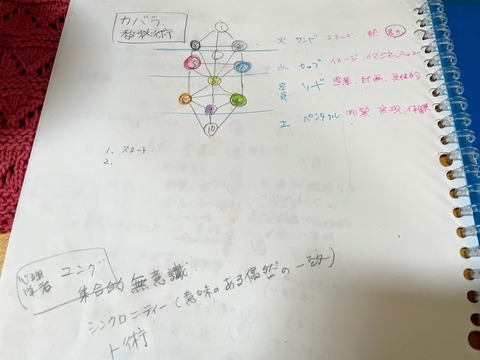 カバラ
数秘術
1
2
3
10
火 ワンド エネルギー
水 カップ イメージ、イマジネーション
ソード 思考、計画、具体的
土 ペンタクル 物質
1. スタート
2.
心理学者 ユング
集合的無意識
シンクロニティー(意味のある偶然の一致)
ト術